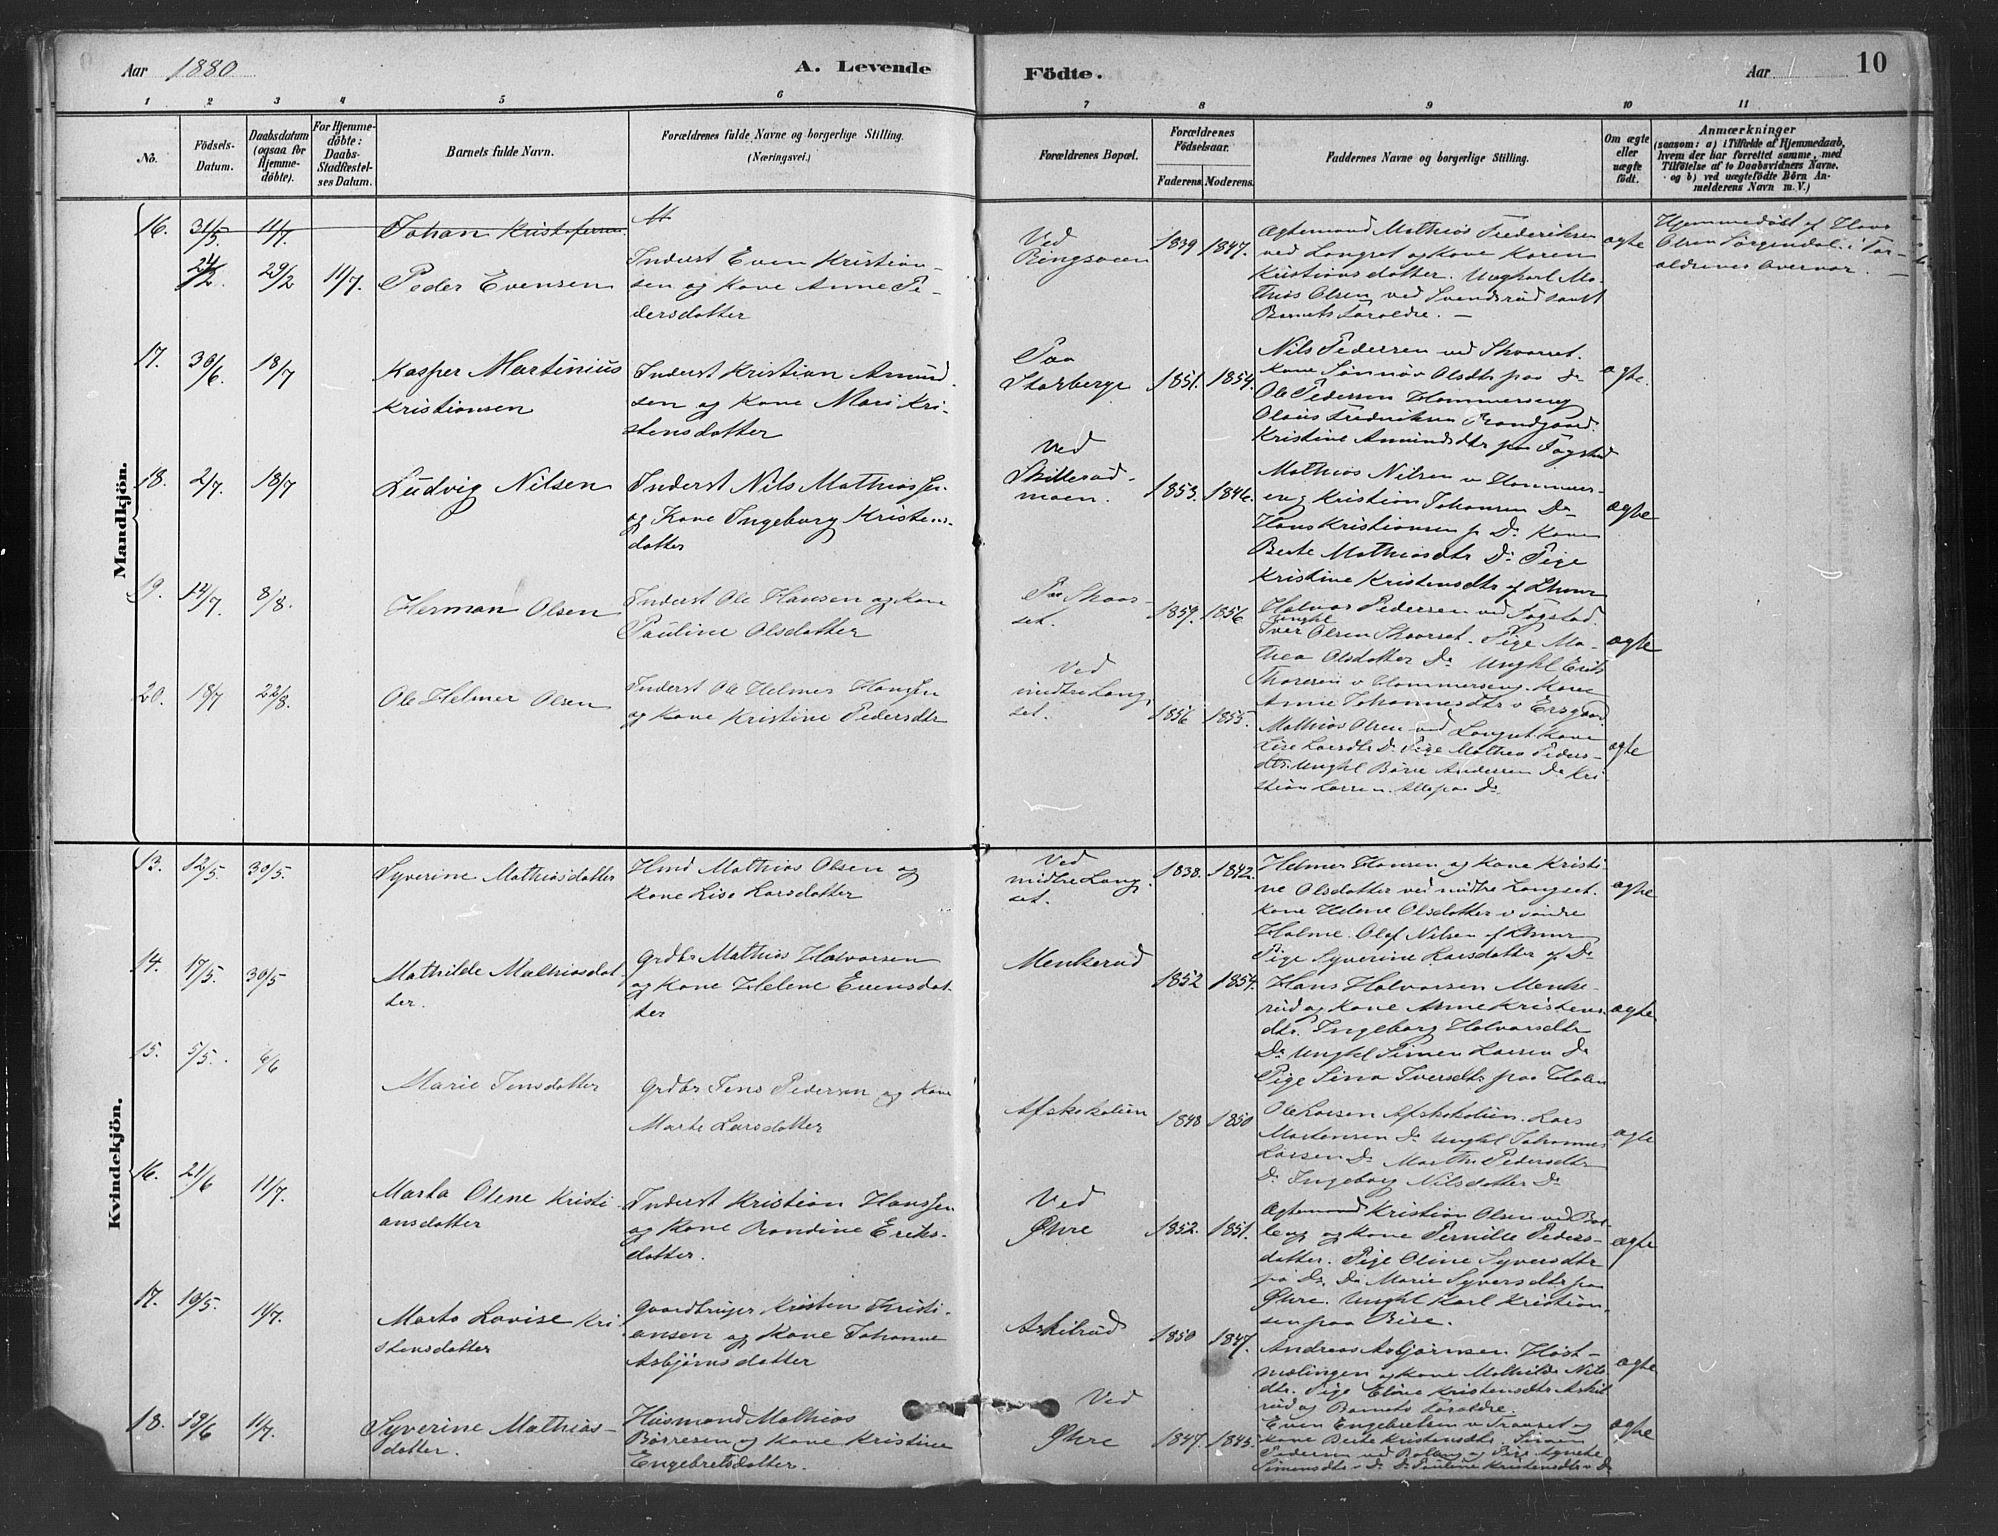 Aar 1880
A. Levende
Födte.
Aar
10
1 2 3 4 5 6 7 8 9 10 11
No.
Födsels-
Datum.
Daabsdatum
(ogsaa for
Hjemme-
döbte).
For Hjemme-
döbte:
Daabs-
Stadfæstel-
ses Datum.
Barnets fulde Navn.
Forældrenes fulde Navne og borgerlige Stilling.
(Næringsvei.)
Forældrenes Bopæl.
Forældrenes
Födselsaar.
Faderens. Moderens.
Faddernes Navne og borgerlige Stilling.
Om ægte
eller
uægte
födt.
Anmærkninger
(saasom: a) i Tilfælde af Hjemmedaab,
hvem der har forrettet samme, med
Tilföielse af to Daabsvidners Navne.
og b) ved uægtefödte Börn An-
melderens Navn m. V.)
Mandkjön.
16. 31/5 11/7 Johan Kristofersen
24/2 29/2 11/7 Peder Evensen
Inderst Even Kristian-
sen og Kone Anne Pe-
dersdatter
Ved
Ringsveen
1839 1847.
Ægtemand Mathias Frederiksen
ved Langset og Kone Karen
Kristiansdatter. Ungkarl Ma-
thias Olsen ved Svendsrud samt
Barnets Forældre.
ægte
Hjemmedöbt af Hans
Olsen Sörgendal i For-
ældrenes Overvær.
17. 30/6 18/7 Kasper Martinius
Kristiansen
Inderst Kristian Amund-
sen og Kone Mari Kri-
stensdatter
Paa
Storberge
1851. 1854.
Nils Pedersen ved Skaarset.
Kone Sönnöv Olsdtr paa Do
Ole Pedersen Hammerseng
Olaus Fredriksen
Kristine Amundsdtr paa Fogstad
ægte.
18. 2/7 18/7 Ludvig Nilsen
Inderst Nils Mathiassen
og Kone Ingeborg Kristens-
datter
Ved
Skillerud-
moen.
1853. 1846.
Mathias Nilsen v Hammer-
eng Kristian Johansen Do
Hans Kristiansen p Do Kone
Berte Mathiasdtr Do Pige
Kristine Kristensdtr af
ægte
19. 14/7 8/8. Herman Olsen
Inderst Ole Hansen og Kone
Pauline Olsdatter
Paa Skaar-
set.
1859. 1856
Halvor Pedersen ved Fogstad.
Unghl
Iver Olsen Skaarset. Pige Ma-
thea Olsdatter Do Unghl Erik
Thoresen v Hammerseng. Kone
Anne Johannesdtr v
ægte
20. 18/7 22/8. Ole Helmer Olsen
Inderst Ole Helmer Hansen
og Kone Kristine Pedersdtr
Ved
midtre Lang-
set.
1856 1855.
Mathias Olsen ved Langset Kone
Lise Larsdtr Do Pige Mathea Peders-
dtr. Unghl Börre Andersen Do Kri-
stian Larsen. Alle paa Do
ægte
Kvindekjön.
13. 12/5 30/5. Syverine Mathiasdatter
Husmd Mathias Olsen og
Kone Lise Larsdatter
Ved
midtre Lang-
set.
1838. 1842.
Helmer Hansen og Kone Kristi-
ne Olsdatter ved midtre Langset.
Kone Helene Olsdatter v söndre
Holme. Olaf Nilsen af
Pige Syverine Larsdatter af Do
ægte
14. 17/5. 30/5 Mathilde Mathiasdat-
ter.
Grdbr Mathias Halvorsen
og Kone Helene Evensdat-
ter
Menkerud
1852 1854.
Hans Halvorsen Menke-
rud og Kone Anne Kristens-
dtr. Ingeborg Halvorsdtr
Do Unghl Simen Larsen Do
Pige Sina Iversdtr paa
ægte
15. 5/5. 6/6 Marie Jensdatter
Grdbr Jens Pedersen og Kone
Marte Larsdatter
Afskokalien
1848 1850
Ole Larsen Afskokalien. Lars
Mortensen Do Unghl Johannes
Larsen Do Marthe Pedersdtr
Do Ingeborg Nilsdatter Do
ægte
16. 21/6 11/7. Marta Oline Kristi-
ansdatter
Inderst Kristian Hanssen
og Kone Randine Eriks-
datter.
Ved
Öhre
1852. 1851.
Ægtemand Kristian Olsen ved Bo-
leng og Kone Pernille Peders-
datter. Pige Oline Syversdtr
paa Do. Do Marie Syversdtr paa
Öhre. Unghl Karl Kristian-
sen paa Rise.
ægte
17. 19/5. 11/7. Marta Lovise Kri-
stensdatter
Gaardbruger Kristen Kristi-
ansen og Kone Johanne
Asbjörnsdatter
Askilrud
1850 1847.
Andreas Asbjörnsen Höst-
mælingen og Kone Mathilde Nils-
dtr. Pige Eline Kristensdtr Askil-
rud og Barnets Forældre.
ægte
18. 19/6 11/7. Syverine Mathias-
datter.
Husmand Mathias
Börresen og Kone Kristine
Engebretsdatter.
Ved
Öhre
1847. 1845.
Even Engebretsen v Traaset og
Kone Berte Kristensdtr. Simen
Pedersen ved Boleng og Pige Agnete
Simensdtr v Do. Do Pauline Kristensdtr v Do
ægte